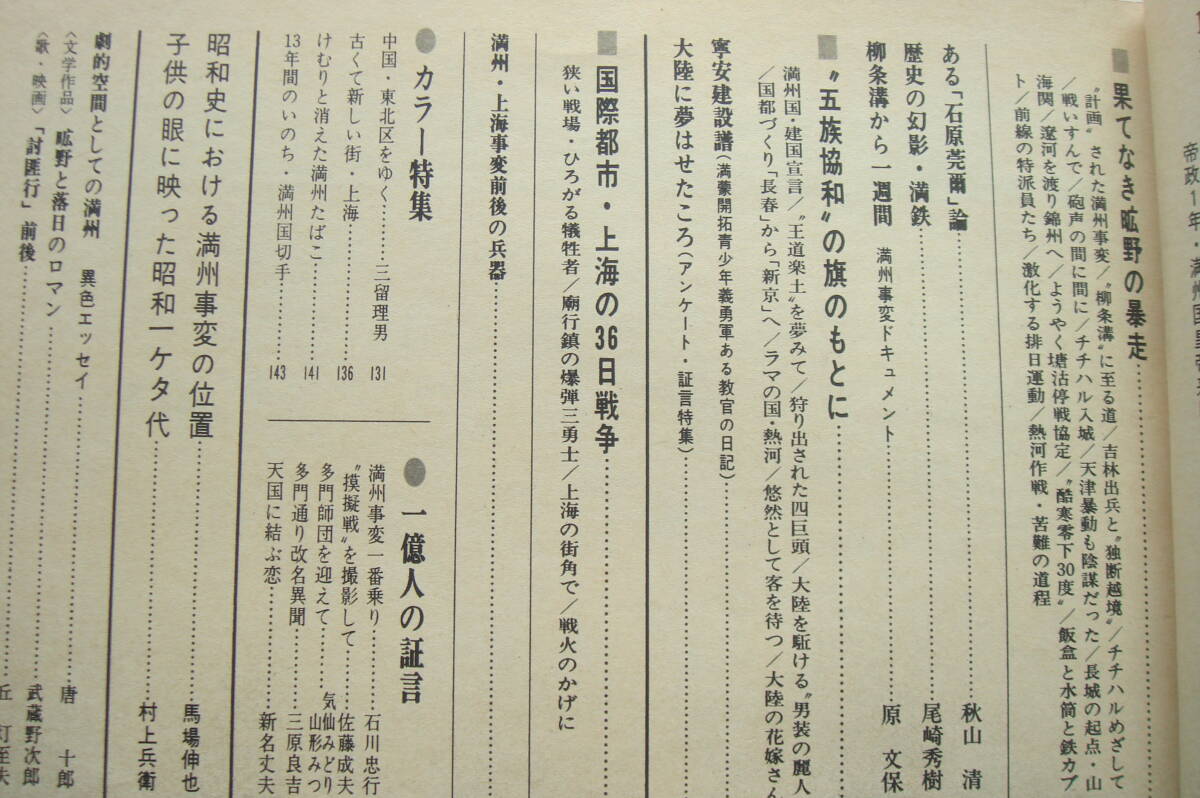 帝政1年・満州国
■果てなき曠野の暴走
〝計画〟された満州事変/〝柳条溝〟に至る道/吉林出兵と〝独断越境〟/チチハルめざして
/戦いすんで/砲声の間に間に/チチハル入城/天津暴動も陰謀だった/長城の起点・山
海関/遼河を渡り錦州へ/ようやく塘沽停戦協定/〝酷寒零下30度〟/飯盒と水筒と鉄カブ
ト/前線の特派員たち/激化する排日運動/熱河作戦・苦難の道程
ある「石原莞爾」論 秋山 清
歴史の幻影・満鉄 尾崎秀樹
柳条溝から一週間 満州事変ドキュメント 原 文保
■〝五族協和〟の旗のもとに
満州国・建国宣言/〝王道楽土〟を夢みて/狩り出された四巨頭/大陸を駈ける〝男装の麗人
/国都づくり「長春」から「新京」へ/ラマの国・熱河/悠然として客を待つ/大陸の花嫁さん
寧安建設譜(満蒙開拓青少年義勇軍ある教官の日記)
大陸に夢はせたころ(アンケート・証言特集)
■国際都市・上海の36日戦争
狭い戦場・ひろがる犠牲者/廟行鎮の爆弾三勇士/上海の街角で/戦火のかげに
満州・上海事変前後の兵器
●カラー特集
中国・東北区をゆく……三留理男 131
古くて新しい街・上海 136
けむりと消えた満州たばこ 141
13年間のいのち・満州国切手 143
●一億人の証言
満州事変一番乗り 石川忠行
〝摸擬戦〟を撮影して 佐藤成夫
多門師団を迎えて 気仙みどり 山形みつ
多門通り改名異聞 三原良吉
天国に結ぶ恋 新名丈夫
昭和史における満州事変の位置 馬場伸也
子供の眼に映った昭和一ケタ代 村上兵衛
劇的空間としての満州 異色エッセイ 唐 十郎
〈文学作品〉 曠野と落日のロマン 武蔵野次郎
〈歌・映画〉 「討匪行」前後 丘 灯至夫